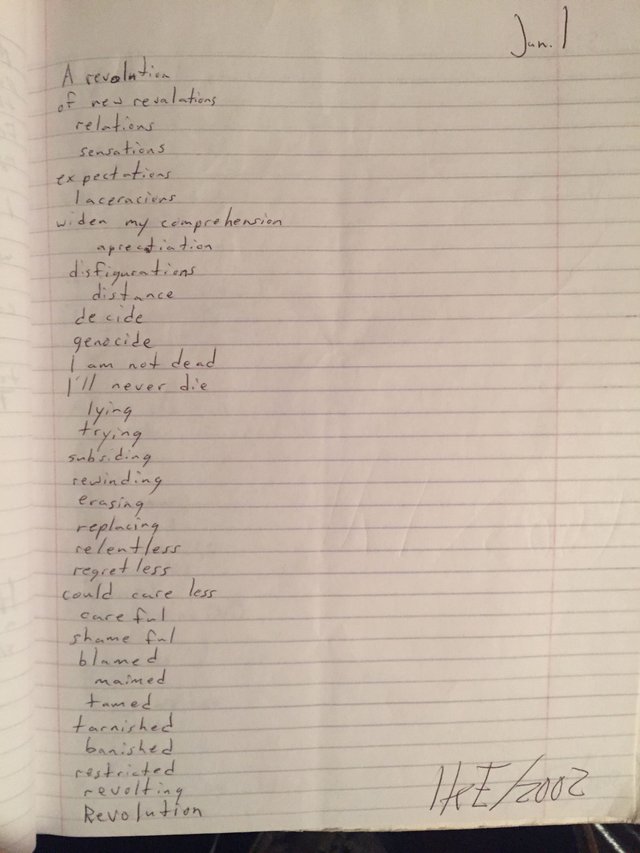 Jun. 1
A revolution
of new revalations
relations
sensations
expectations
laceracions
widen my comprehension
aprectiation
disfigurations
distance
decide
genocide
I am not dead
I'll never die
lying
trying
subsiding
rewinding
erasing
replacing
relentless
regretless
could care less
careful
shameful
blamed
maimed
tamed
tarnished
banished
restricted
revolting
Revolution
/2002